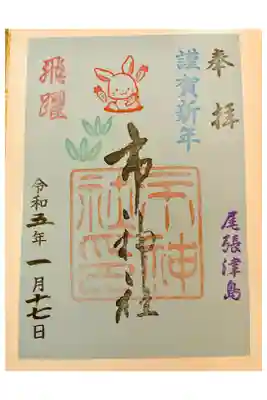 奉拝
尾張津島
謹賀新年
市神社
市神
社印
飛躍
令和五年一月十七日